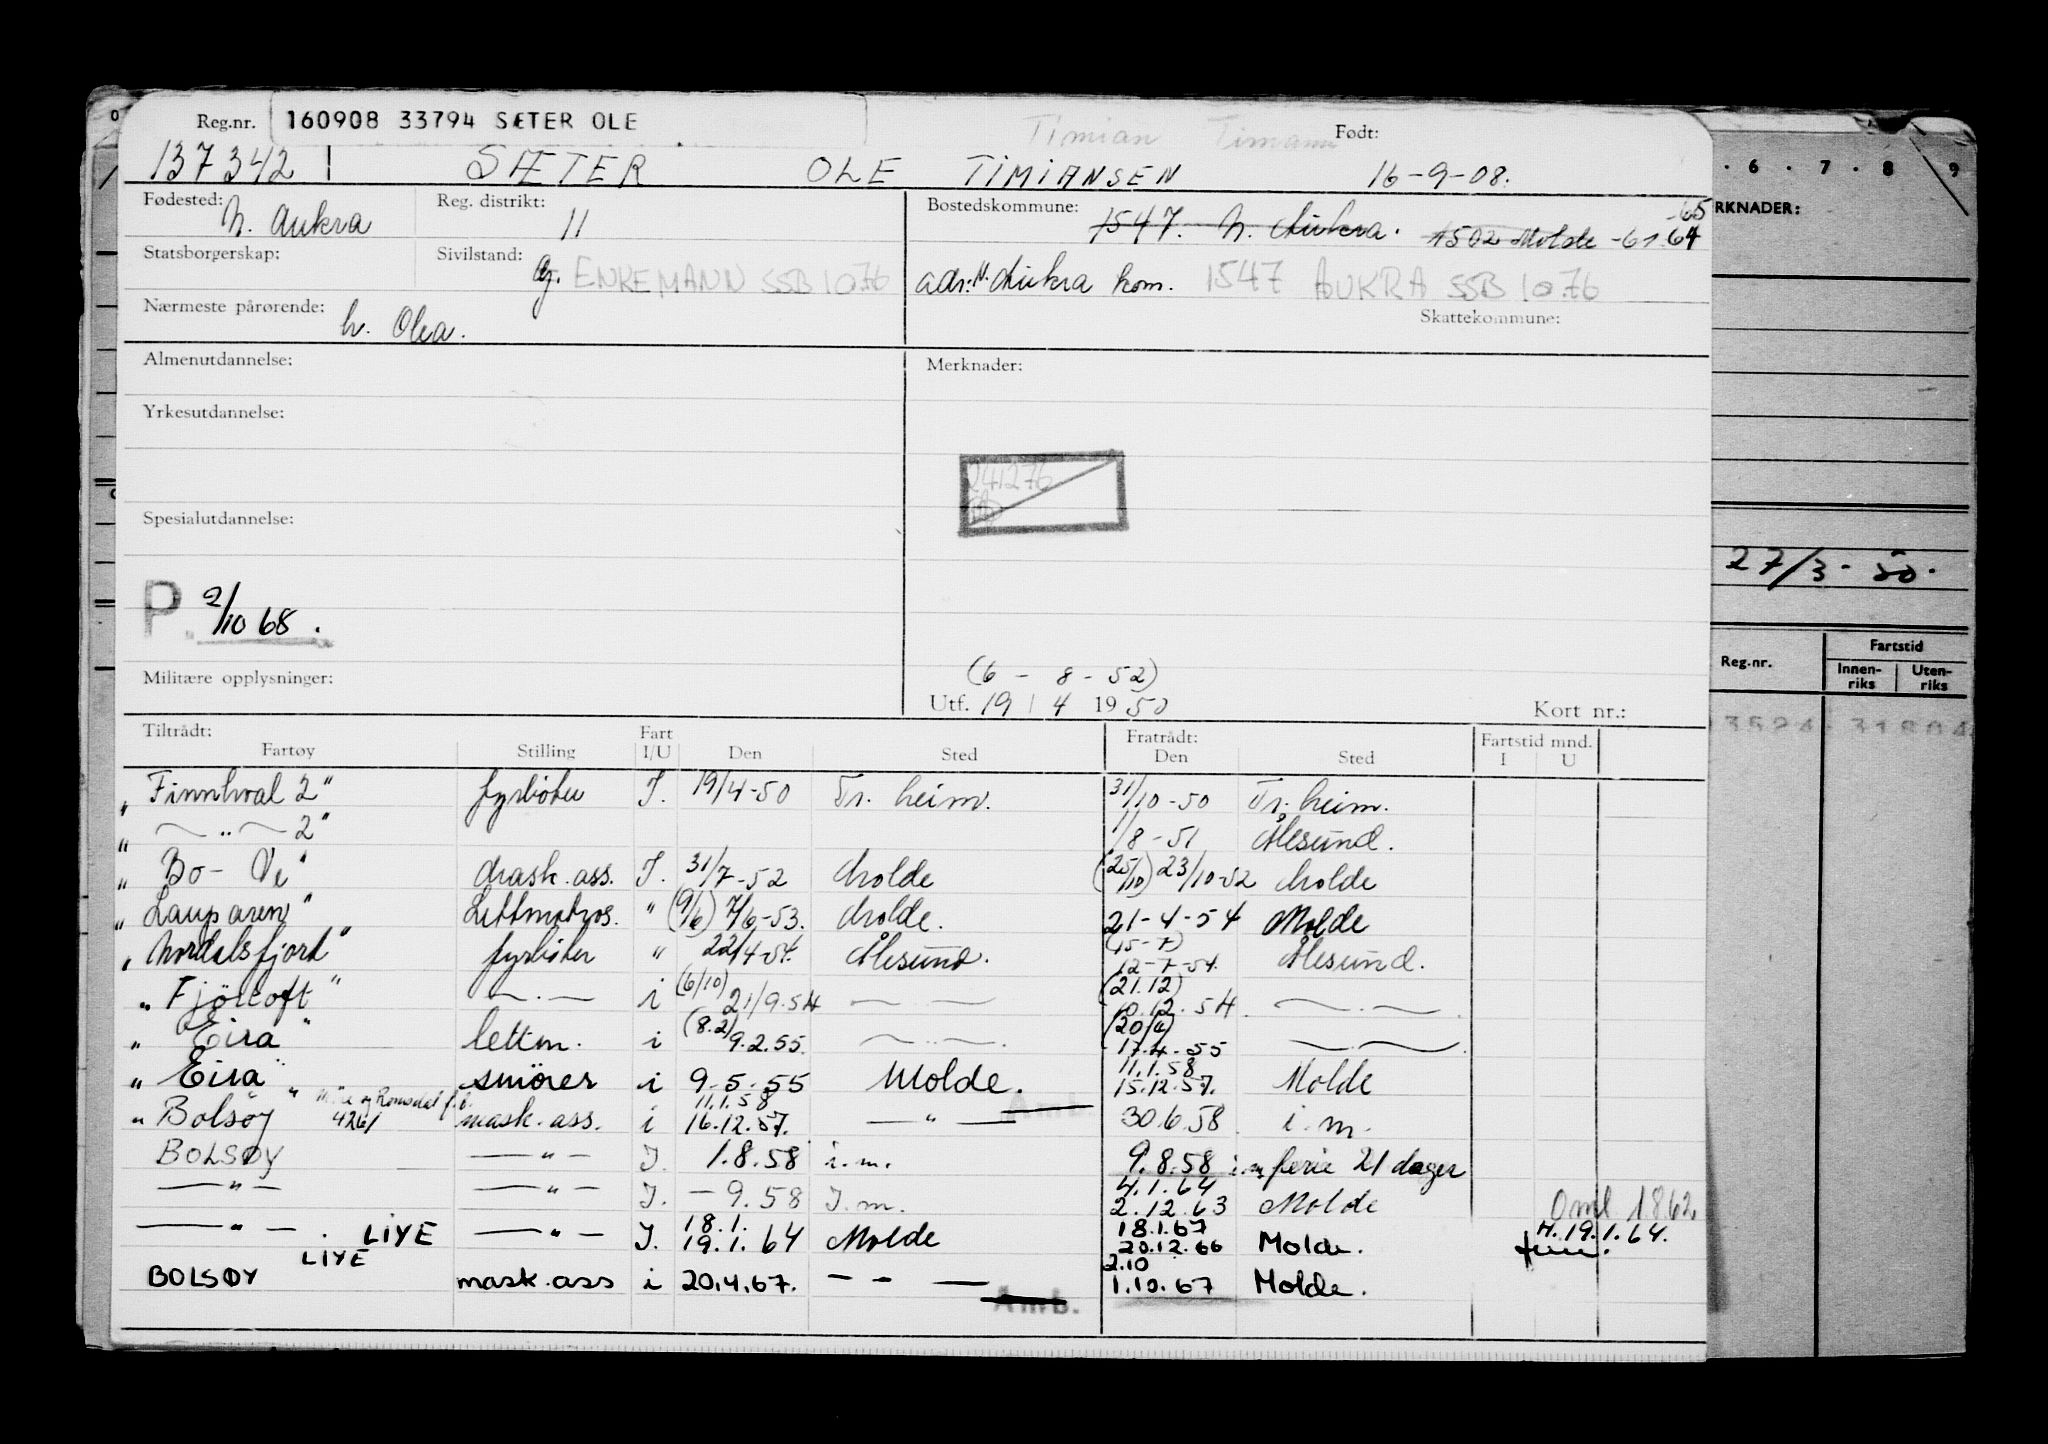 Reg.nr. 160908 33794 SÆTER OLE
Timian Timann Født:
137342 | SÆTER OLE TIMIANSEN 16-9-08.
Fødested: N. Aukra Reg. distrikt: 11 Bostedskommune: 1547. N. Aukra. 1502 Molde -61 64 -65
Statsborgerskap: Sivilstand: g. ENKEMANN SSB 10.76 adr: N. Aukra kom. 1547 AUKRA SSB 10.76
Nærmeste pårørende: h. Olea. Skattekommune:
Almenutdannelse: Merknader:
Yrkesutdannelse:
241276
Spesialutdannelse:
P. 2/10 68.
Militære opplysninger: (6 - 8 - 52)
Utf. 19 / 4 1950 Kort nr.:
Tiltrådt: Fratrådt: Fartstid mnd.
Fartøy Stilling Fart I/U Den Sted Den Sted I U
"Finnhval 2" fyrbøter I. 19/4-50 Tr.heim. 31/10-50 Tr.heim.
" — " — 2" 1/8-51 Ålesund.
"Bo-Ve" Mask.ass. I. 31/7-52 Molde (25/10) 23/10-52 Molde
"Lauparen" Lettmatros. " (9/6) 7/6-53. Molde. 21-4-54 Molde
"Nordalsfjord" fyrbøter " 22/4-54. Ålesund. (15-7) 12-7-54. Ålesund.
"Fjörtoft" — " — i (6/10) 21/9.54 — — (21.12) 10.12.54 — " —
"Eira" lettm. i (8.2) 9.2.55. — " — (20/4) 17.4.55 — " —
"Eira" smörer i 9-5-55 Molde. 11.1.58 15.12.57. Molde
"Bolsøy" Møre og Romsdal f.b. 4261 mask.ass. i 11.1.58 16.12.57. — " — Amb. 30.6.58 i.m.
BOLSØY — " — I. 1.8.58 i.m. 9.8.58 i.m. ferie 21 dager
— " — — " — I. — 9.58 I.m. 4.1.64 2.12.63 Molde Oml 1862
— " — . LIYE — " — I. 18.1. 19.1.64 Molde 18.1.67 20.12.66 Molde. H. 19.1.64.
BOLSØY LIYE mask.ass i 20.4.67. — " — Amb. 2.10 1.10.67 Molde.
6 . 7 . 8 9
RKNADER:
27/3-50.
Reg.nr. Fartstid
Innen-riks Uten-riks